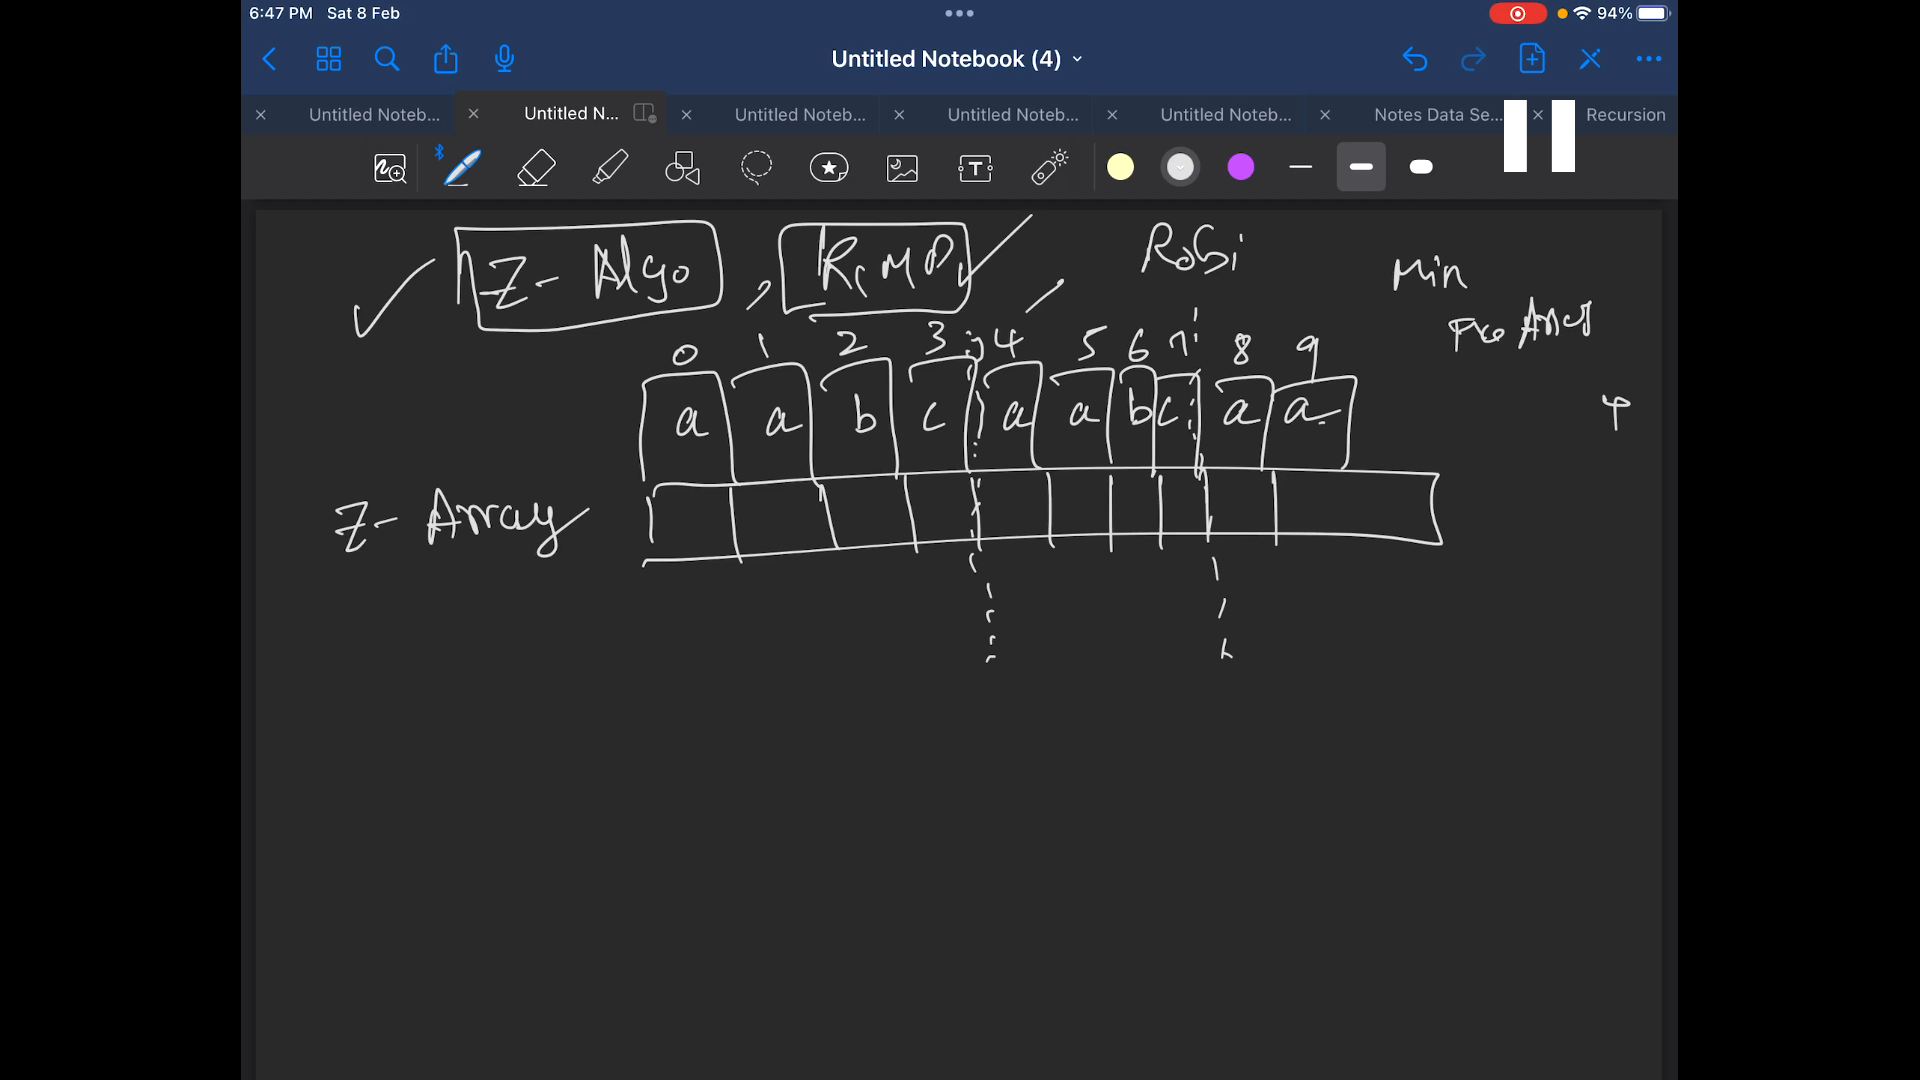 6:47 PM Sat 8 Feb 94%
Untitled Notebook (4)
Untitled Noteb... Untitled N... Untitled Noteb... Untitled Noteb... Untitled Noteb... Notes Data Se... Recursion
Z- Algo , Min
0 1 2 3 4 5 6 7 8 9
a a b c a a b c a a
Z- Array